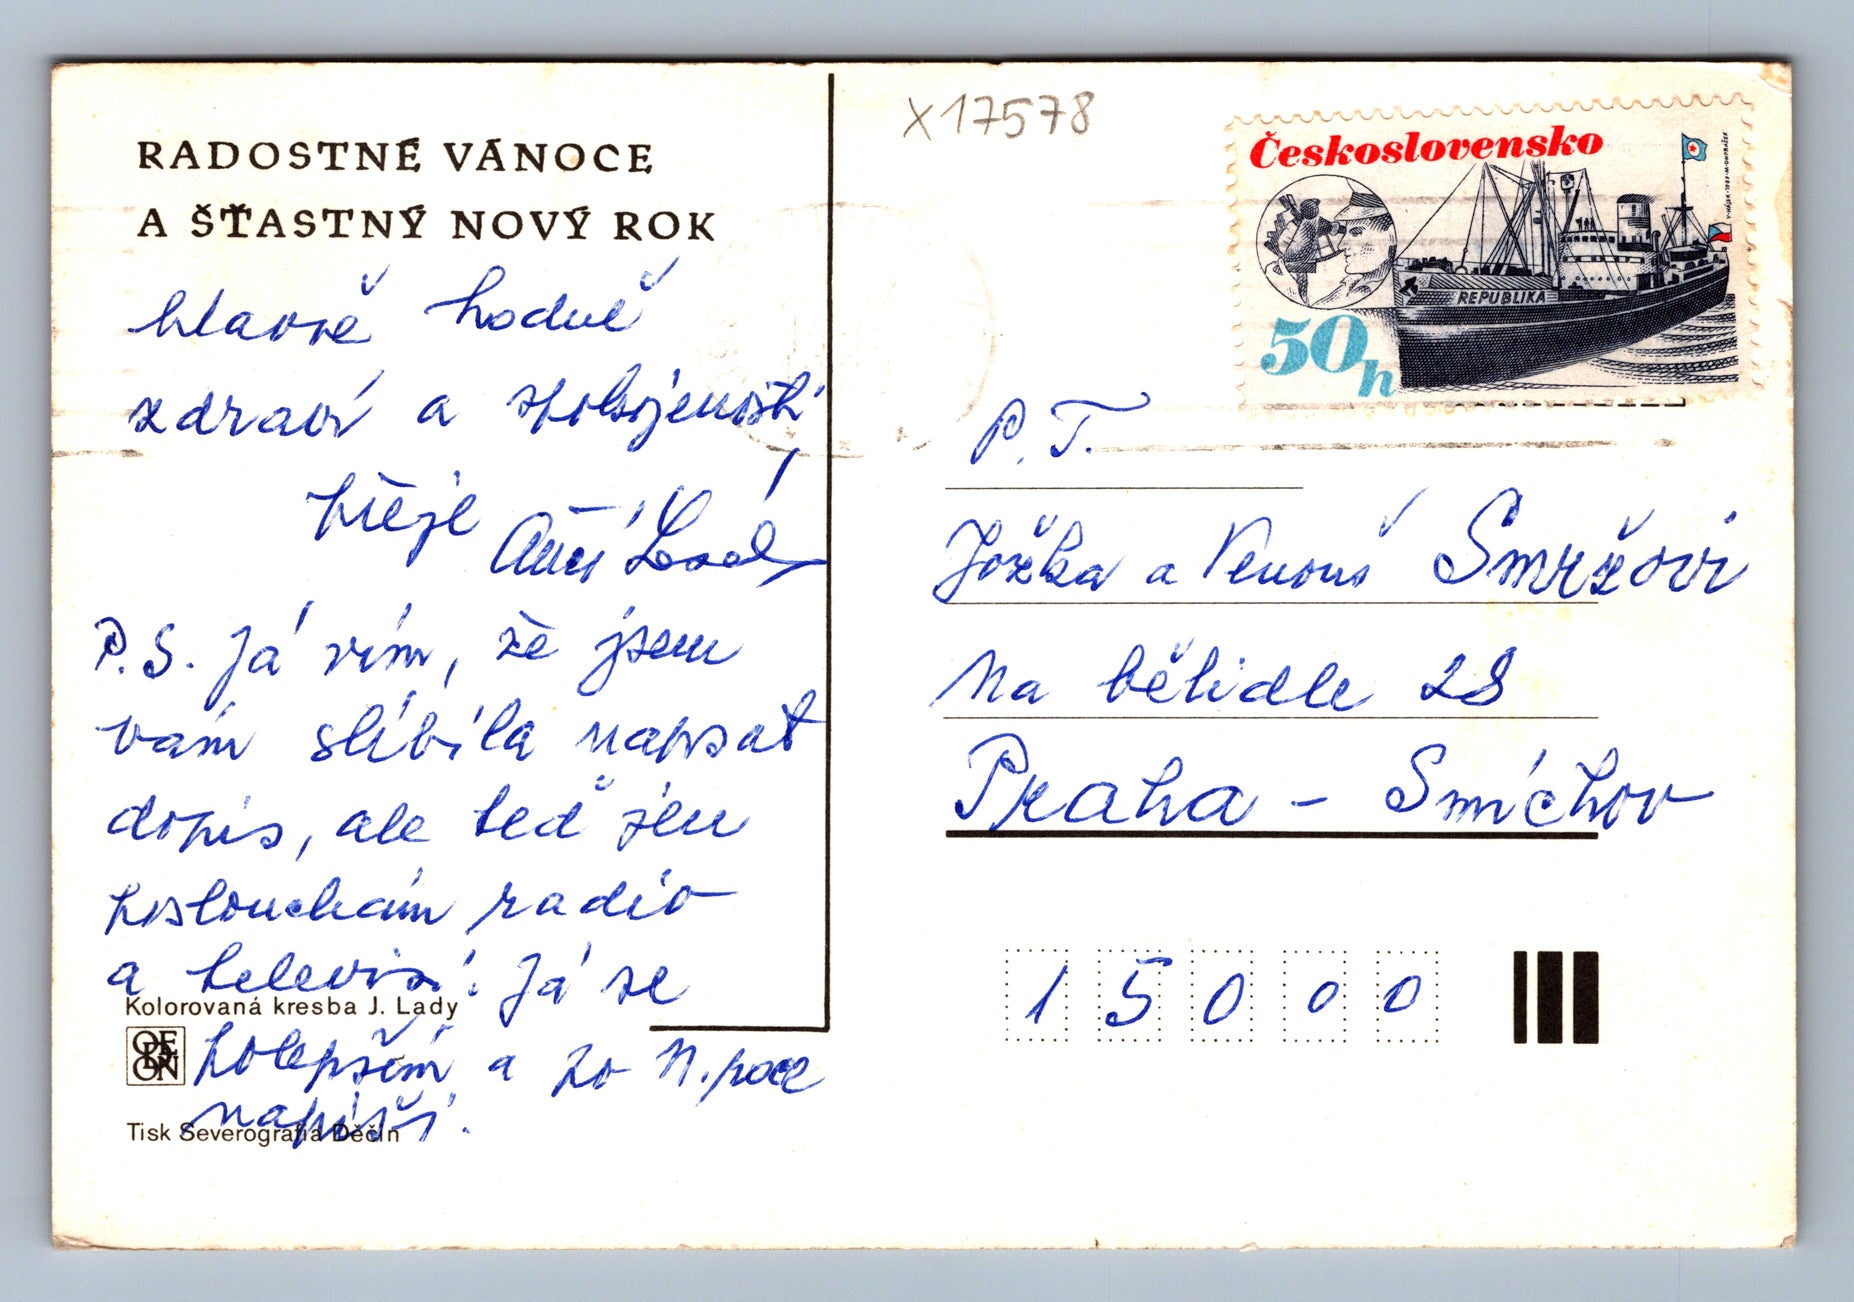 RADOSTNÉ VÁNOCE
A ŠŤASTNÝ NOVÝ ROK
hlavně hodně
zdraví a spokojenosti
přeje
P.S. Já vím, že jsem
vám slíbila napsat
dopis, ale teď jen
poslouchám radio
a televisi. Já se
Kolorovaná kresba J. Lady
polepším a po N. roce
napíši.
Tisk Severografia Děčín
X17578
Československo
REPUBLIKA
50h
P. T.
Jožka a Smržovi
Na bělidle 28
Praha - Smíchov
15000